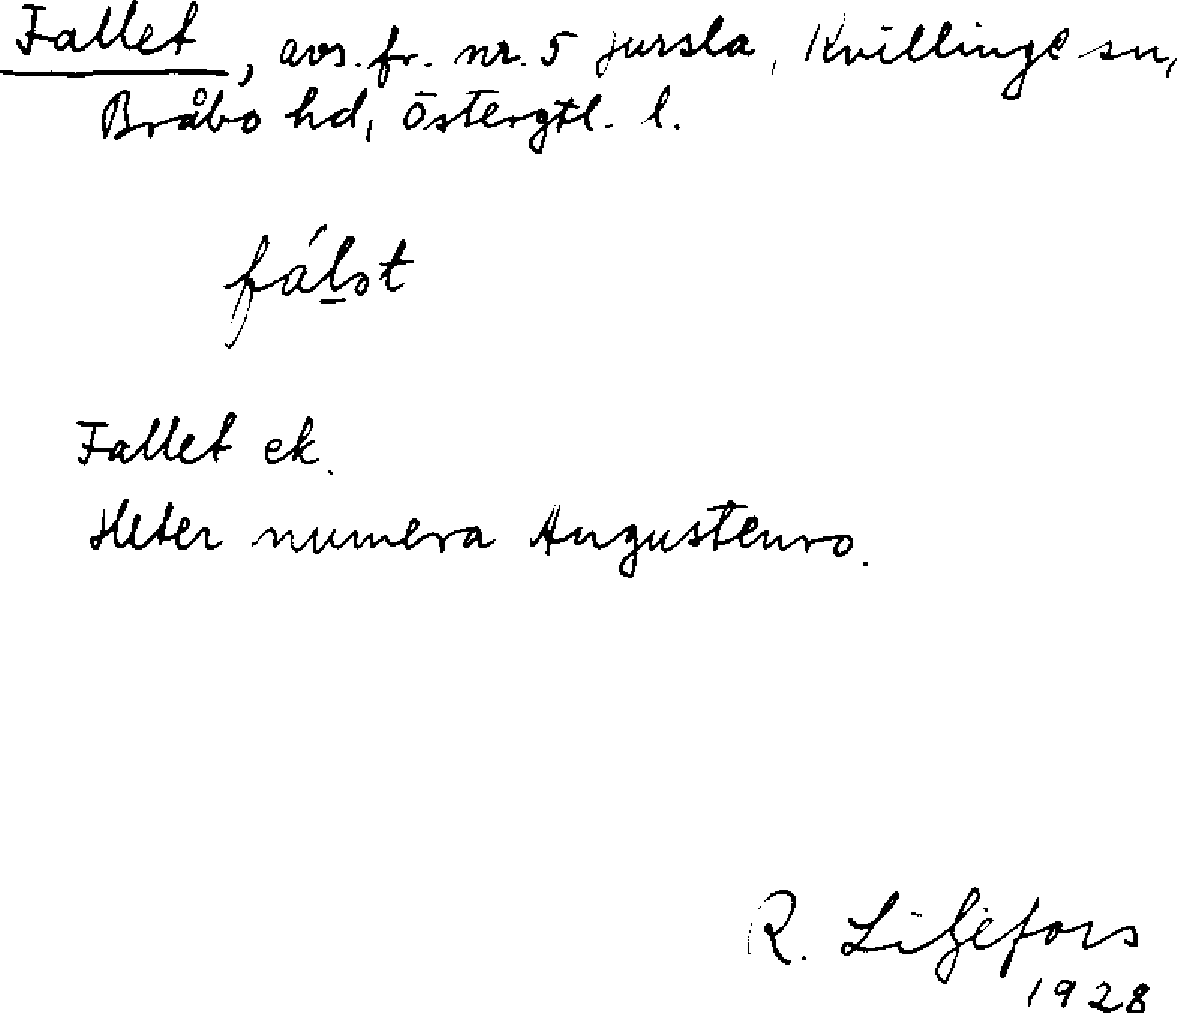 Fallet, avs. fr. nr. 5 Jursla, Kvillinge sn,
Bråbo hd, Östergtl. l.
fálət
Fallet ek.
Heter numera Augustenro.
R. Liljefors
1928